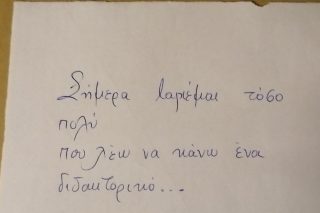 Σήμερα βαριέμαι τόσο
πολύ
που λέω να κάνω ένα
διδακτορικό...